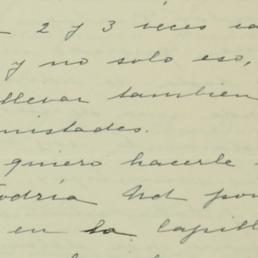 2 y 3 veces
y no solo eso,
llevar tambien
nistades.
quiero hacerle
odria Not pon
en la capill